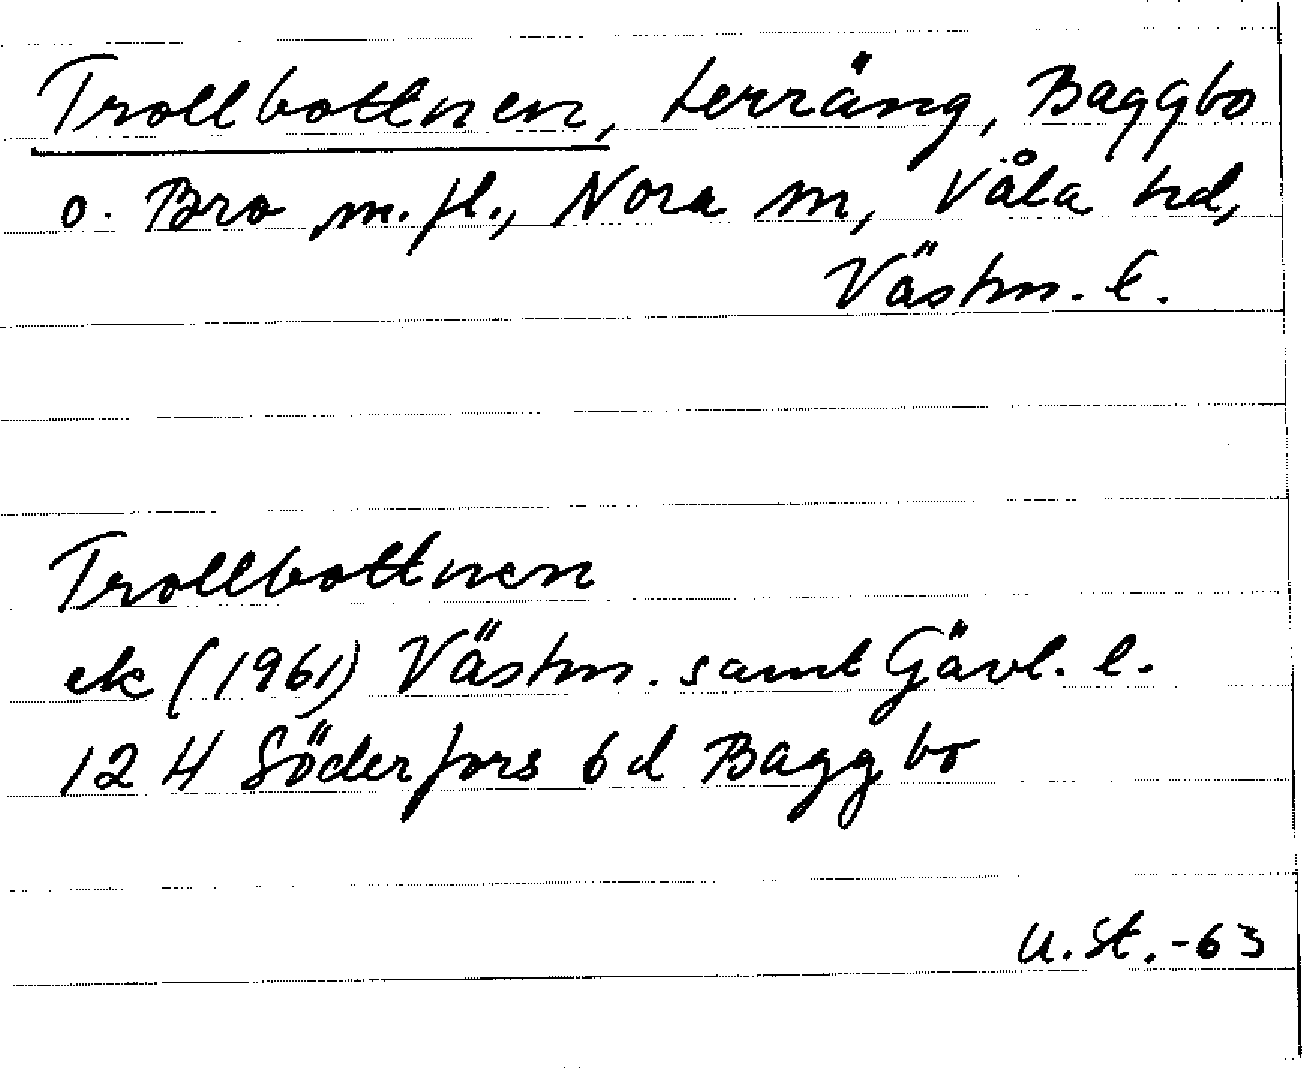 Trollbottnen, terräng, Baggbo
o. Bro m. fl., Nora sn, Våla hd,
Västm. l.
Trollbottnen
ek (1961) Västm. samt Gävl. l.
12 H Söderfors 6d Baggbo
U. St. -63